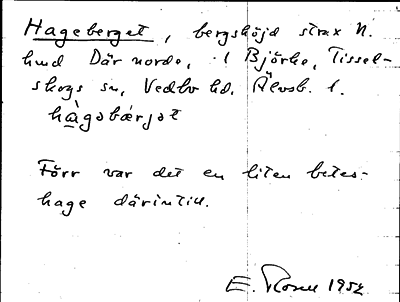 Hageberget, bergshöjd strax N.
hmd Där norde, i Björke, Tissel-
skogs sn, Vedbo hd. Älvsb. l.
hàgəbærjət
Förr var det en liten betes-
hage därintill.
E. Rosell 1952